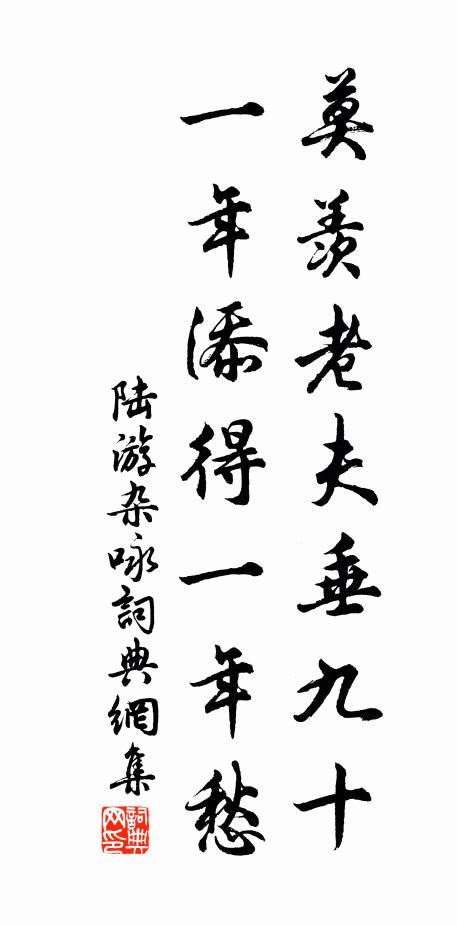 莫羨老夫垂九十
一年添得一年愁
陆游杂咏詞典網集
詞典网印